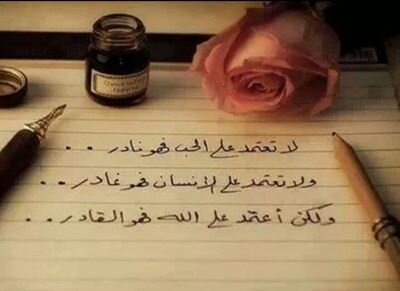 لا تعتمد على الحب فهو نادر . .
ولا تعتمد على الإنسان فهو غادر . .
ولكن أعتمد على الله فهو القادر . .